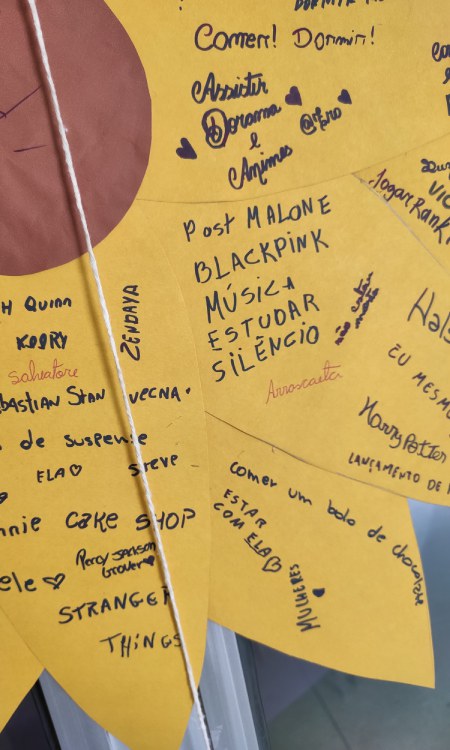 Comer! Dormir!
Assistir
Dorama
e
Animes
Post MALONE
BLACKPINK
MÚSICA
ESTUDAR
SILÊNCIO
Arrascaeta
Jogar
EU MESMO
Harry Potter
LANÇAMENTO DE
H QUINN
KORRY
ZENDAYA
Salvatore
SEBASTIAN STAN
VECNA.
de suspense
ELA♡
STEVE
CAKE SHOP
Percy Jackson
Grover
ele♡
STRANGER
THINGS
comer um bolo de chocolate
ESTAR
COM ELA♡
MULHERES